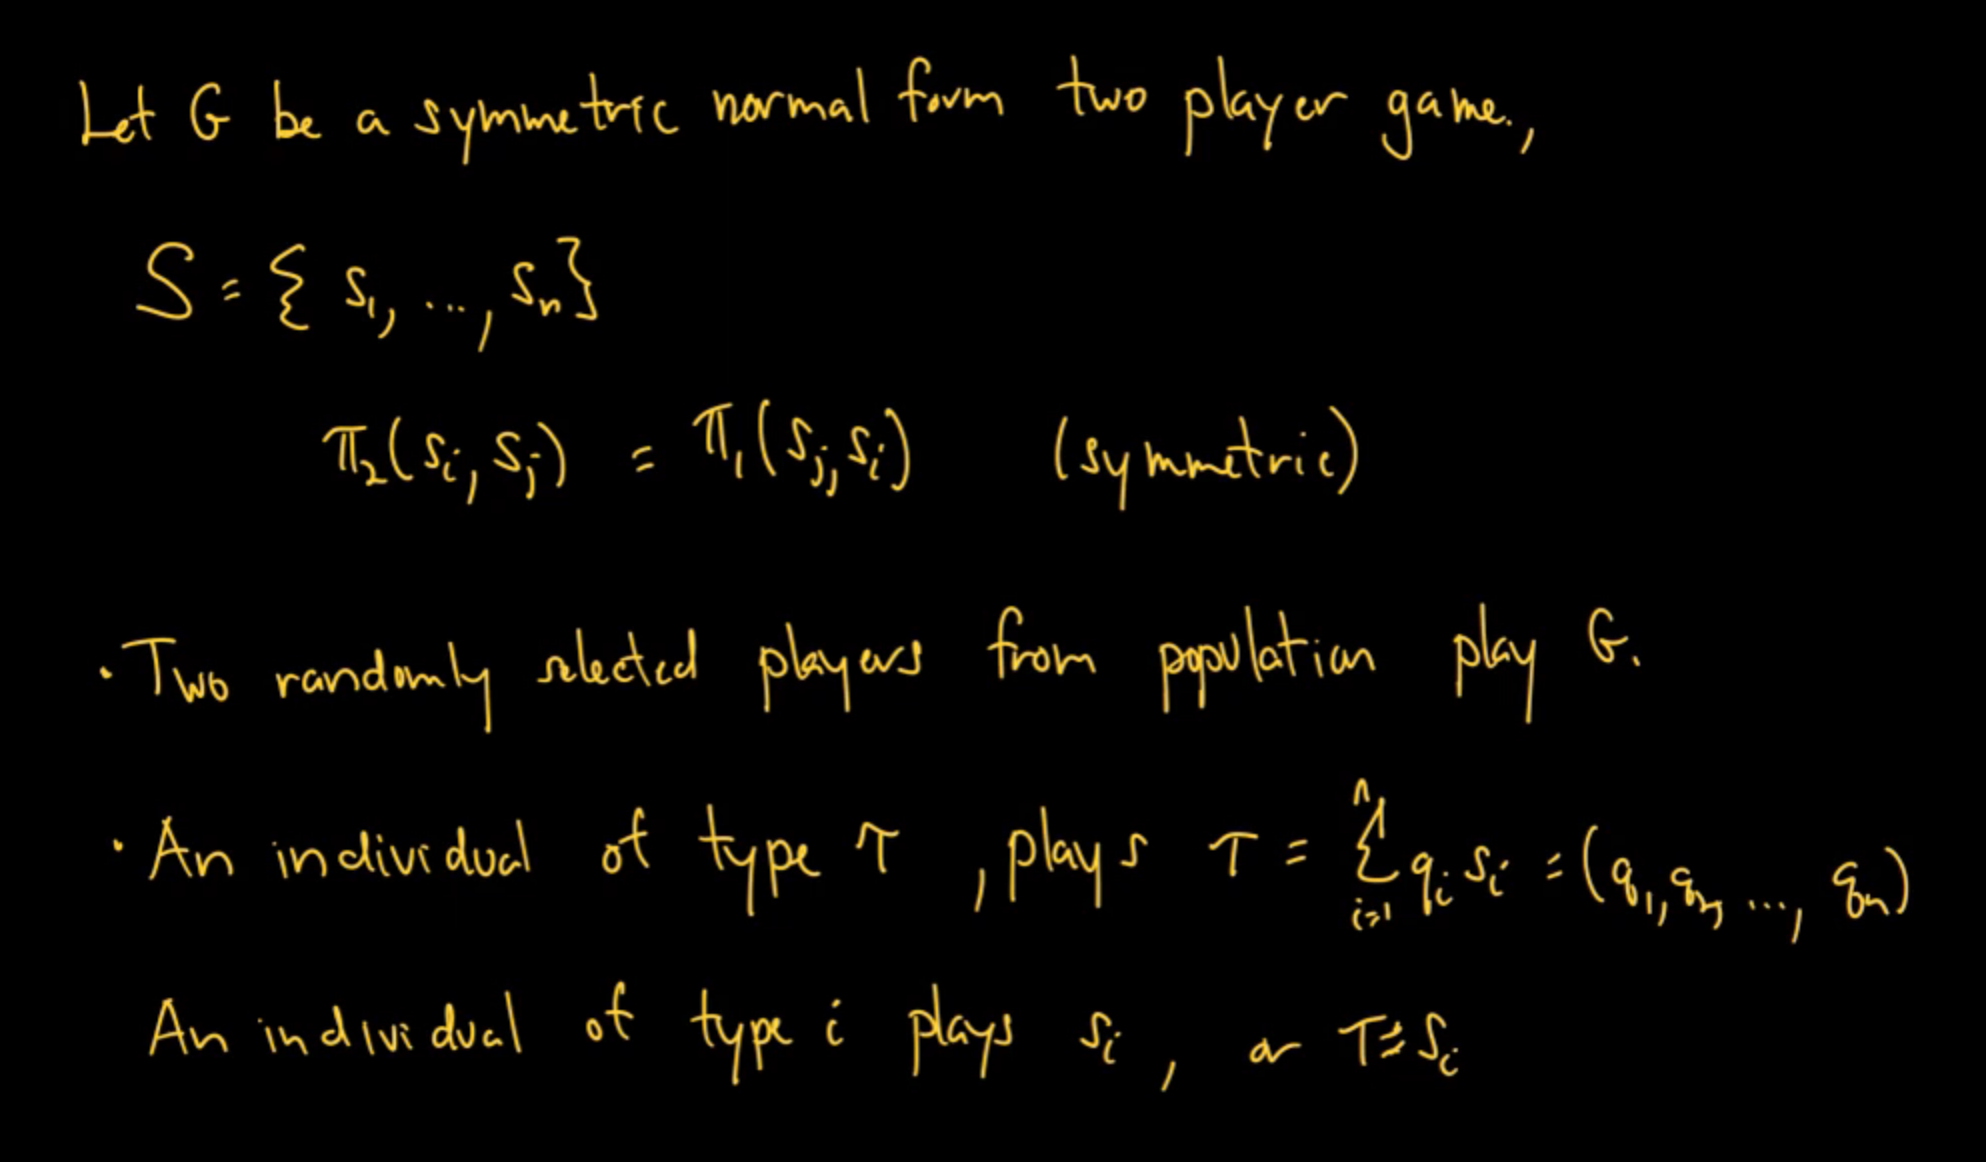 Let G be a symmetric normal form two player game.,
S = { s₁, ..., sₙ}
π₂(sᵢ, sⱼ) = π₁(sⱼ, sᵢ) (symmetric)
· Two randomly selected players from population play G.
· An individual of type τ, plays τ = ∑ⁿᵢ₌₁ qᵢ sᵢ = (q₁, q₂, ..., qₙ)
An individual of type i plays sᵢ, or τ = sᵢ